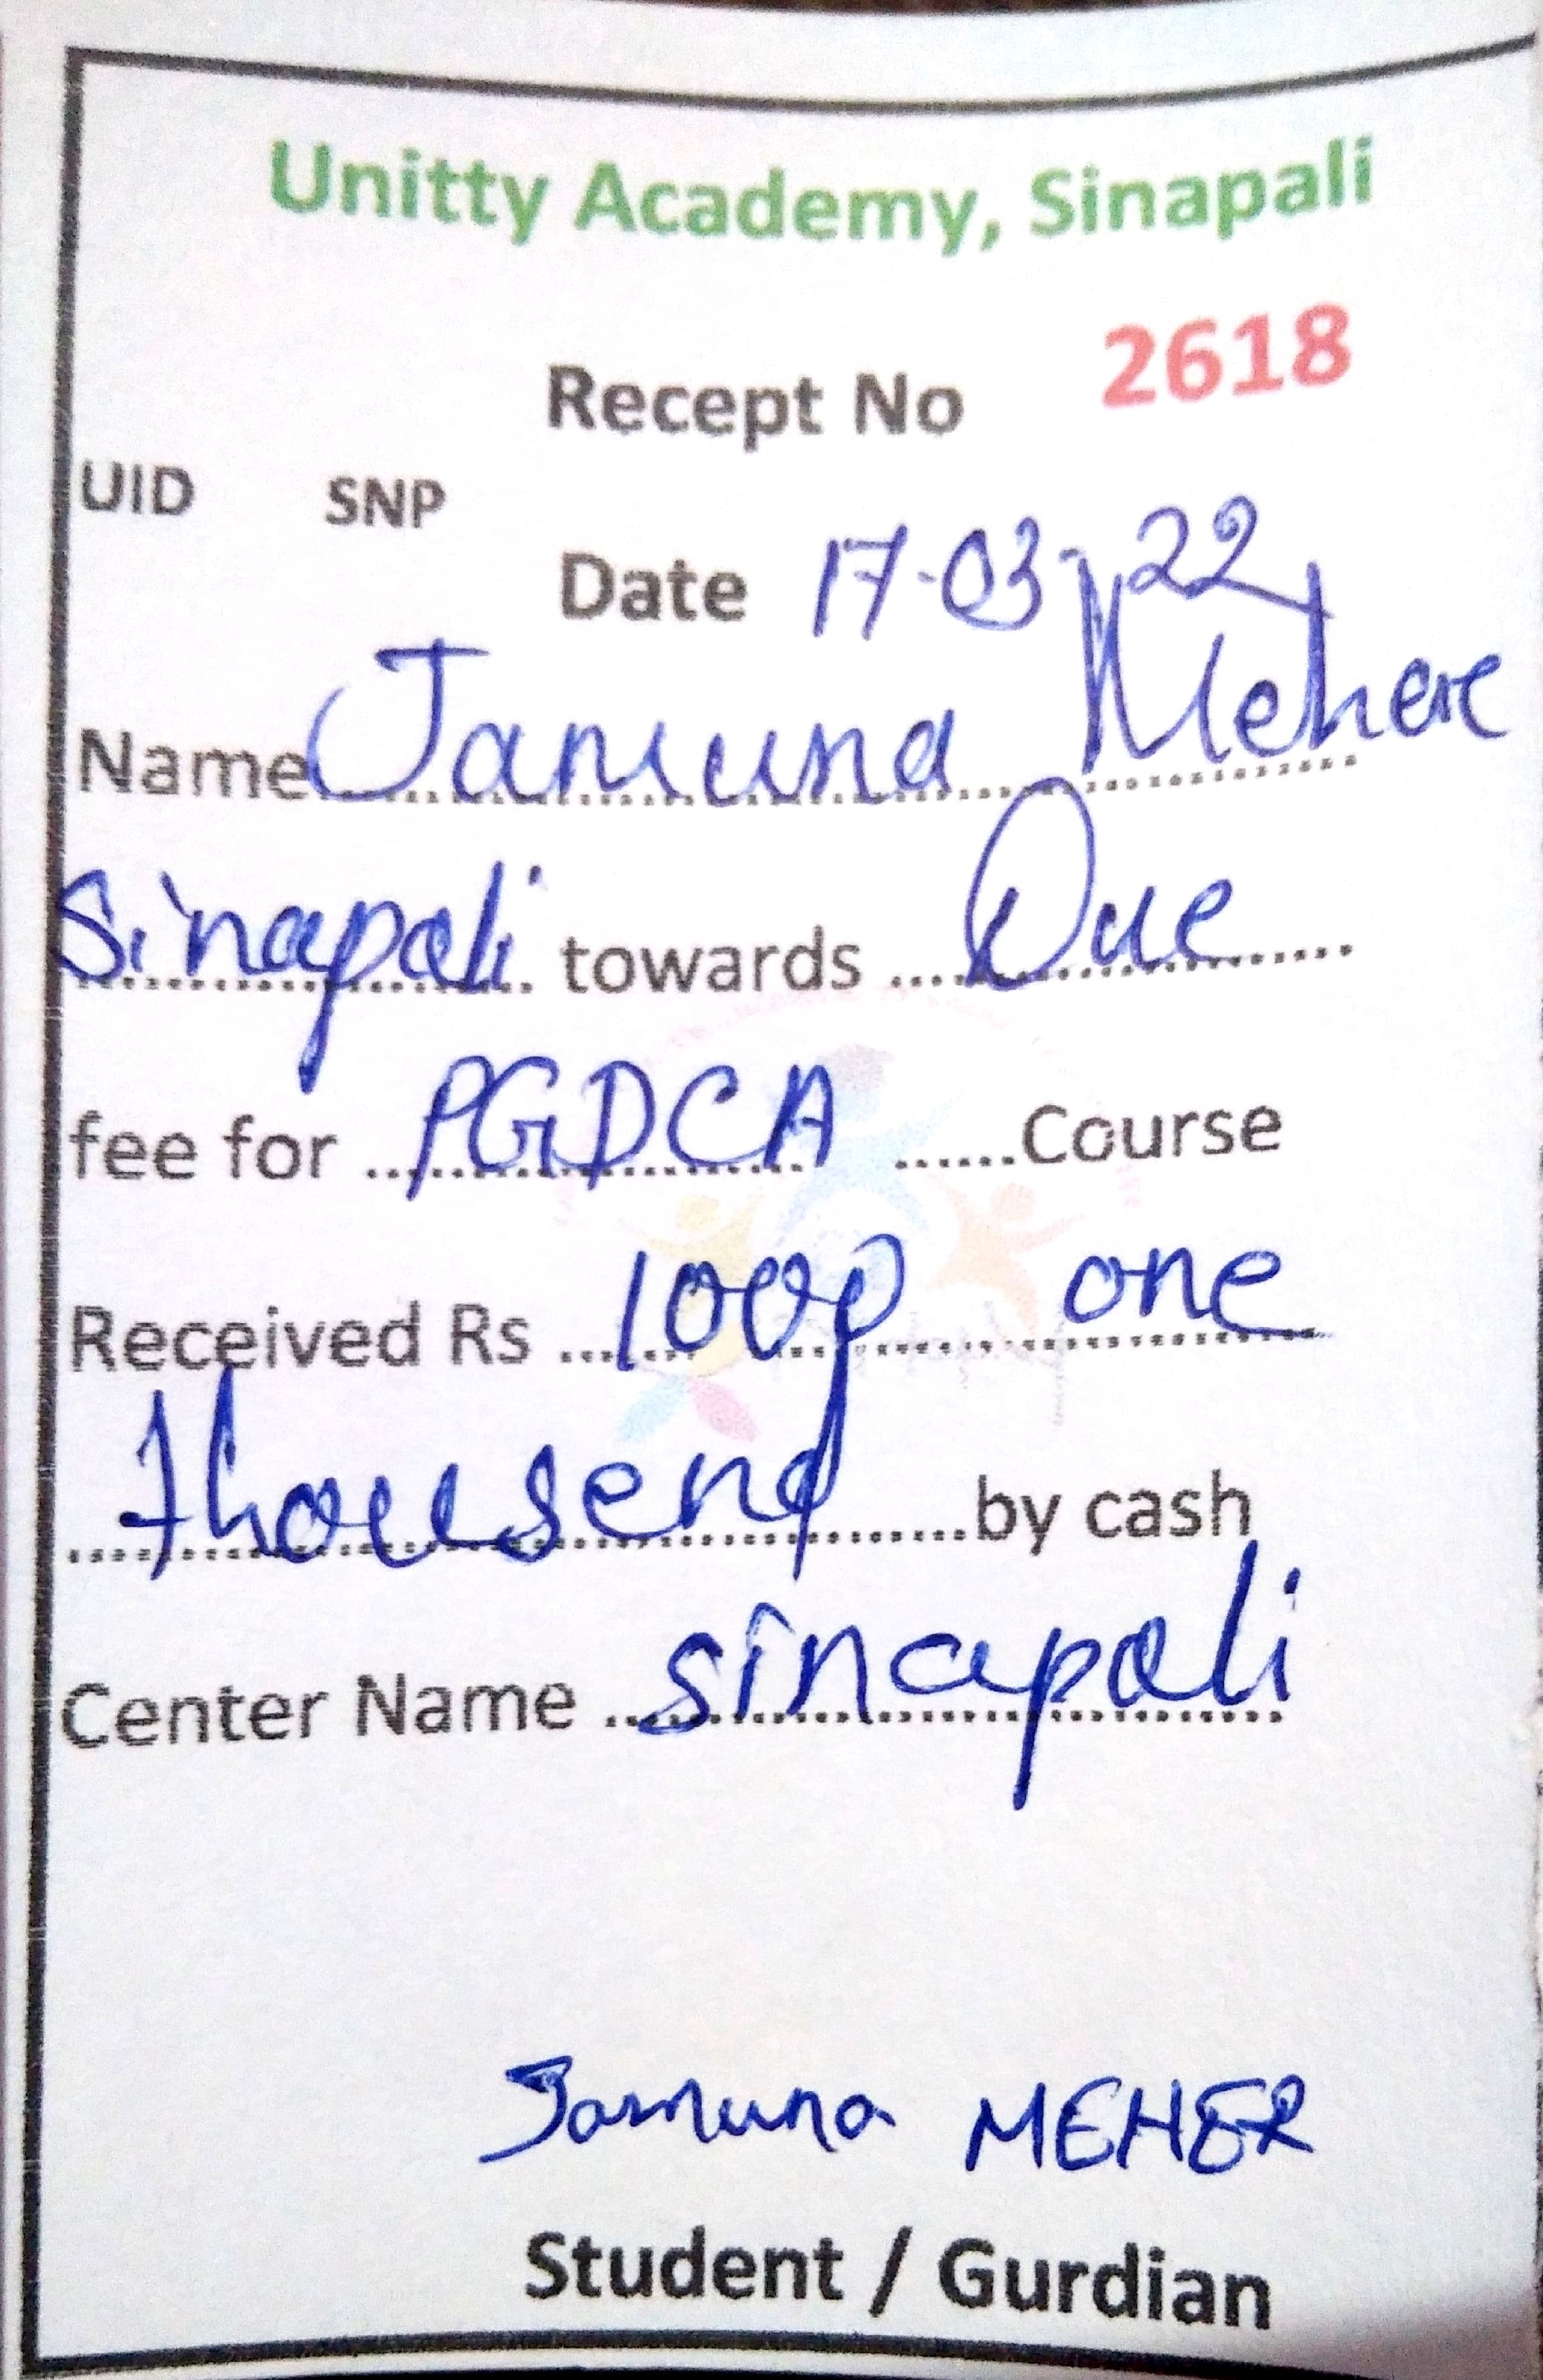 Unitty Academy, Sinapali
Recept No 2618
UID SNP
Date 17-03-22
Name Jamuna Mehere
Sinapali towards Due
fee for PGDCA Course
Received Rs 1000 one
thousend by cash
Center Name sinapali
Jamuna MEHER
Student / Gurdian